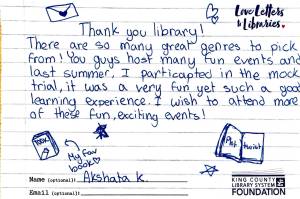 Love Letters
to Libraries.
Thank you library!
There are so many great genres to pick
from! You guys host many fun events and
last summer, I particapted in the mock
trial, it was a very fun yet such a good
learning experience. I wish to attend more
of these fun, exciting events!
BOOK
My fav
book
Plot
twist
Name (optional): Akshata K.
Email (optional):
KING COUNTY
LIBRARY SYSTEM
FOUNDATION